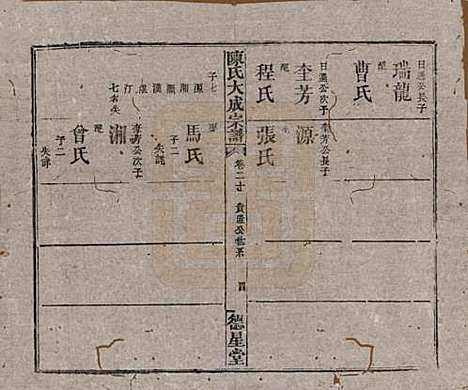 日進公長子
瑞龍
配
曹氏
日進公次子
奎芳
配
程氏
奎芳公長子
源
張氏
子七
源
湘
漢
汀
七名失
陳氏大成宗譜
卷二十
公世系
四
德星堂
配
馬氏
子二
失諱
奎芳公次子
湘
配
曾氏
子二
失諱